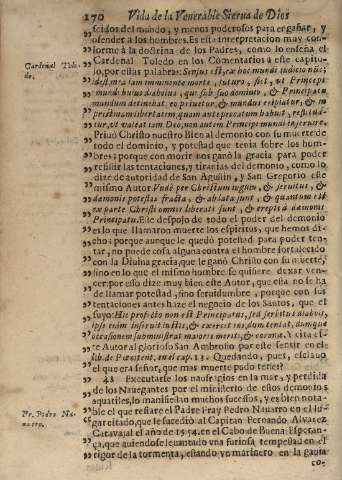 170 Vida de la Venerable Sierua de Dios
„ cidos del mundo, y menos poderosos para engañar, y
„ ofender a los hombres. Es esta interpretacion muy con-
„ forme à la doctrina de los Padres, como lo enseña el
Cardenal Tole-
do.
„ Cardenal Toledo en los Comentarios à este capitu-
„ lo, por estas palabras: Sensus est, ex hoc mundi iudicio nunc,
„ idest, mea iam imminente morte, futurum, vt Princeps
„ mundi huius diabolus, qui sub suo dominio, & Principatu
„ mundum detinebat, eo priuetur, & mundus eripiatur, &
„ libertatem, quam ante peccatum habuit, restitua-
„ tur,
„ Priuò Christo nuestro Bien al demonio con su muerte de
„ todo el dominio, y potestad que tenia sobre los hom-
„ bres; porque con morir nos ganò la gracia para poder
„ resistir las tentaciones, y tiranias del demonio, como lo
„ dize de autoridad de San Agustin, y San Gregorio este
„ mismo Autor. Vnde per Christum iugum, & seruitus, &
„ damonis potestas fracta, & ablata sunt, & quantum est
„ ex parte Christi omnes liberati sunt, & erepti à damonis
„ Principatu. Este despojo de todo el poder del demonio
„ es lo que llamaron muerte los espiritus, que hemos di-
„ cho: porque aunque le quedò potestad para poder ten-
„ tar, no puede cosa alguna contra el hombre fortalecido
„ con la Diuina gracia, que le ganò Christo con su muerte,
„ sino en lo que el mismo hombre se quisiere dexar ven-
„ cer: por esso dize muy bien este Autor, que esta no se ha
„ de llamar potestad, sino seruidumbre, porque con sus
„ tentaciones antes haze el negocio de los Santos, que el
„ suyo: His profecto non est Principatus, sed seruitus diaboli,
„ ipse enim inseruit iustis, & exercet eos, dum tentat, dumque
„ occasionem subministrat maioris meriti, & corona. Y cita es-
„ te Autor al glorioso San Ambrosio por este sentir en el
„ lib. de Pænitent. en el cap. 13. Quedando, pues, esclauo
„ el que era señor, que mas muerte pudo tener?
„ 42 Executarse los naufragios en la mar, y perdida
„ de los Nauegantes por el ministerio de estos demonios
„ aquatiles, lo manifiestan muchos sucessos, y es bien nota-
Fr. Pedro Na-
uarro.
„ ble el que refiere el Padre Fray Pedro Nauarro en el lu-
„ gar citado, que le sucediò al Capitan Fernando Aluarez
„ Carauajal el año de 1554. en el Cabo de Buena Esperan-
„ ça, que auiendose leuantado vna furiosa tempestad en el
„ rigor de la tormenta, estando vn marinero en la gauia
co-